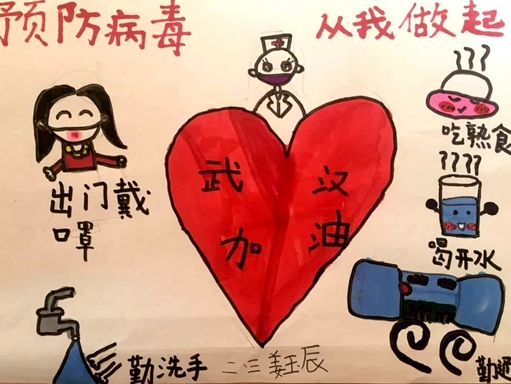 预防病毒 从我做起
出门戴
口罩
武汉
加油
吃熟食
喝开水
勤洗手
二三姜玉辰
勤通